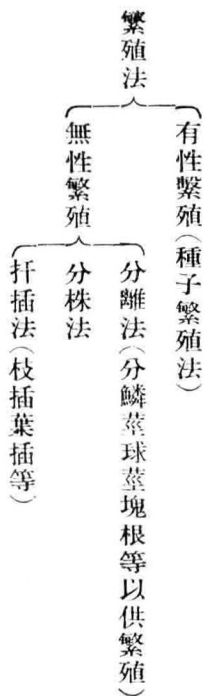 繁殖法
有性繫殖(種子繁殖法)
無性繁殖
分離法(分鱗莖球莖塊根等以供繁殖)
分株法
扦插法(枝插葉插等)